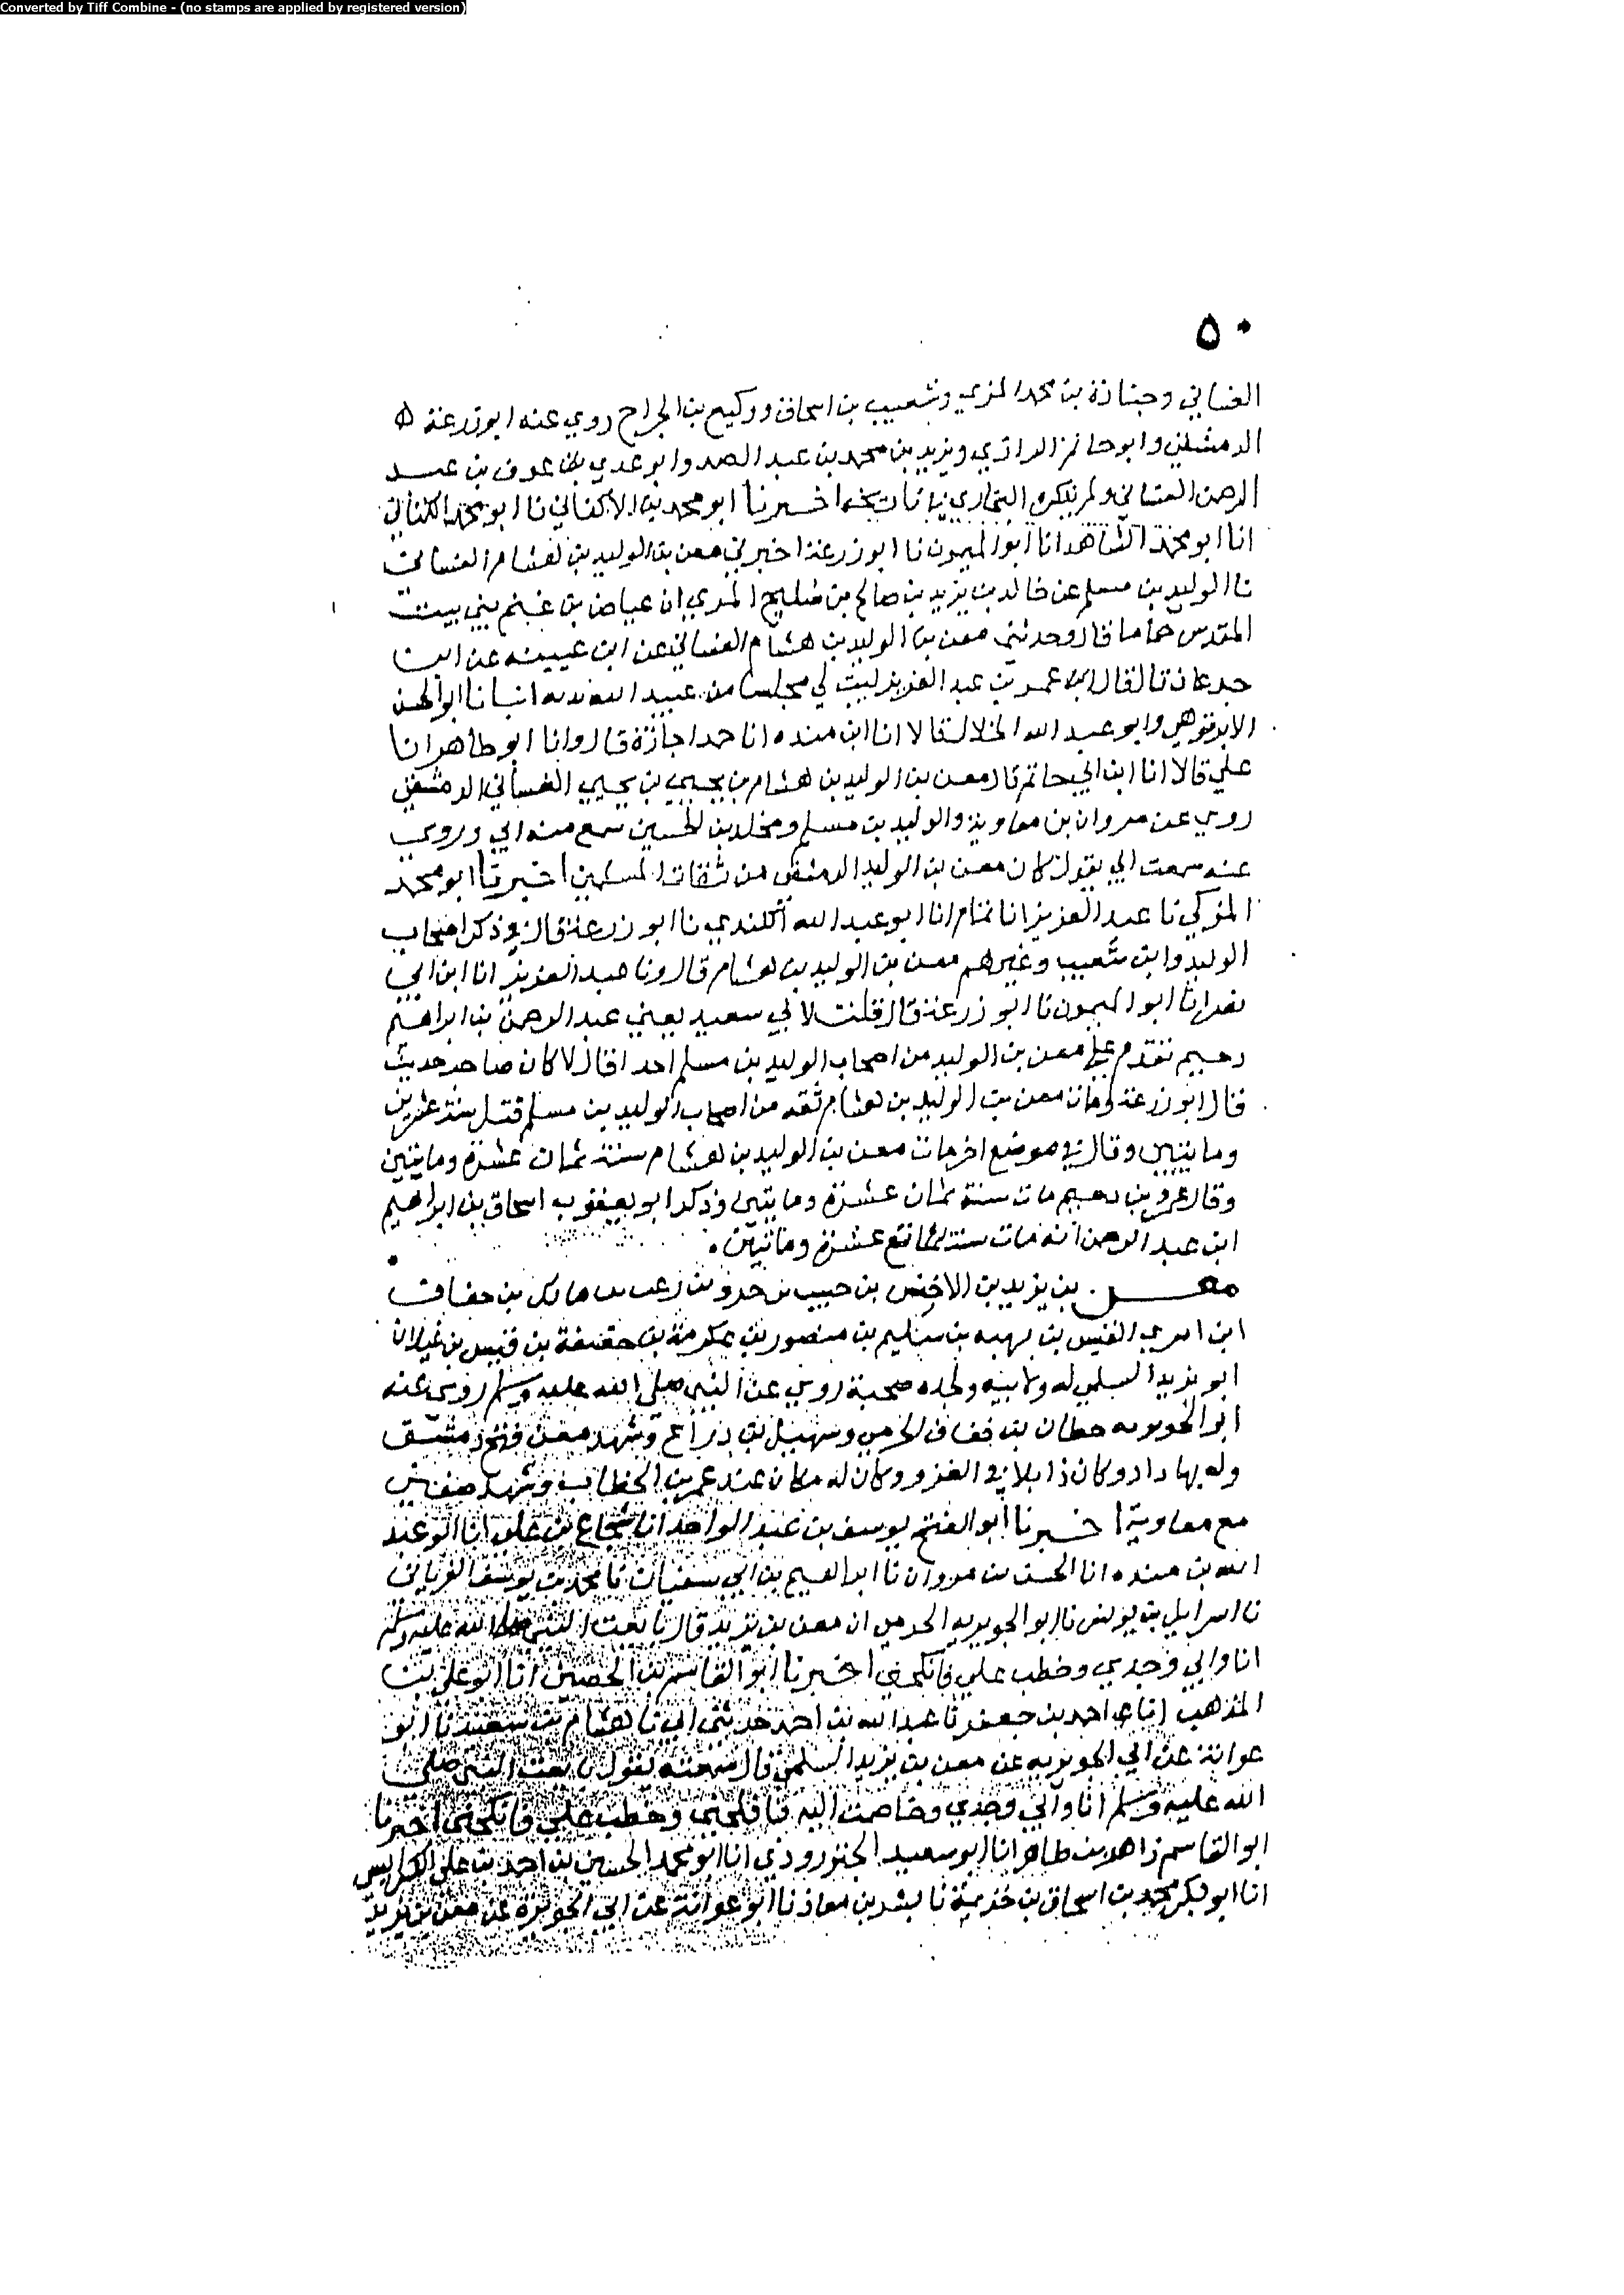 Converted by Tiff Combine - (no stamps are applied by registered version)
٥٠
الغساني وجنادة بن محمد المزي وشعيب بن اسحاق ووكيع بن الجراح روي عنه ابو زرعة
الدمشقي وابو حاتم الرازي ويزيد بن محمد بن عبد الصمد وابو عدي بن عوف بن عبد
الرحمن الغساني ولم يذكره البخاري في تاريخه اخبرنا ابو محمد بن الاكفاني نا ابو محمد الكتاني
انا ابو محمد الشاهد انا ابو الميمون نا ابو زرعة اخبرني معن بن الوليد بن هشام الغساني
نا الوليد بن مسلم عن خالد بن يزيد بن صالح بن صبيح المري ان عياض بن غنم بني ببيت
المقدس حماما قال وحدثني معن بن الوليد بن هشام الغساني عن ابن عيينه عن ابن
جدعان قال قال عمر بن عبد العزيز ليت لي مجلسا من عبيد الله انبانا ابو الحسن
الابرقوهي وابو عبد الله الخلال قالا انا ابن منده انا حمد اجازة قال وانا ابو طاهر انا
علي قالا انا ابن ابي حاتم قال معن بن الوليد بن هشام بن يحيي بن يحيي الغساني الدمشقي
روي عن مروان بن معاوية والوليد بن مسلم ومخلد بن الحسين سمع منه ابي وروي
عنه سمعت ابي يقول كان معن بن الوليد الدمشقي من ثقات المسلمين اخبرنا ابو محمد
المزكي نا عبد العزيز انا تمام انا ابو عبد الله الكندي نا ابو زرعة قال في ذكر اصحاب
الوليد وابن شعيب وغيرهم معن بن الوليد بن هشام قال ونا عبد العزيز انا ابن ابي
نصر انا ابو الميمون نا ابو زرعة قال قلت لابي سعيد يعني عبد الرحمن بن ابراهيم
دحيم تقدم علي معن بن الوليد من اصحاب الوليد بن مسلم احدا قال لا كان صاحب حديث
قال ابو زرعة ومات معن بن الوليد بن هشام ثقه من اصحاب الوليد بن مسلم قتل سنة عشرين
ومايتين وقال في موضع اخر مات معن بن الوليد بن هشام سنة ثمان عشرة ومايتين
وقال عمرو بن دحيم مات سنة ثمان عشرة ومايتين وذكر ابو يعقوب اسحاق بن ابراهيم
ابن عبد الرحمن انه مات سنة عشرة ومايتين
معن بن يزيد بن الاخنس بن حبيب بن جرو بن زعب بن مالك بن خفاف
ابن امري القيس بن بهيه بن سليم بن منصور بن عكرمة بن خصفة بن قيس بن غيلان
ابو يزيد السلمي له ولابيه ولجده صحبة روي عن النبي صلي الله عليه وسلم روي عنه
ابو الجويريه حطان بن خفاف الجرمي وسهيل بن ذراع وشهد معن فتح دمشق
وله بها دار وكان ذا بلا في الغزو وكان له مكان عند عمر بن الخطاب وشهد صفين
مع معاوية اخبرنا ابو الفتح يوسف بن عبد الواحد انا شجاع بن علي انا ابو عبد
الله بن منده انا الحسن بن مروان نا ابراهيم بن ابي سفيان نا محمد بن يوسف الفريابي
نا اسرايل بن يونس نا ابو الجويريه الجرمي ان معن بن يزيد قال بايعت النبي صلي الله عليه وسلم
انا وابي وجدي وخطب علي فانكحني اخبرنا ابو القاسم بن الحصين انا ابو علي بن
المذهب انا احمد بن جعفر نا عبد الله بن احمد حدثني ابي نا هشام بن سعيد نا ابو
عوانة عن ابي الجويريه عن معن بن يزيد السلمي قال سمعته يقول بايعت النبي صلي
الله عليه وسلم انا وابي وجدي وخاصمت اليه فافلجني وخطب علي فانكحني اخبرنا
ابو القاسم زاهر بن طاهر انا ابو سعيد الجنزرودي انا ابو محمد الحسين بن احمد بن علي
انا ابو بكر محمد بن اسحاق بن خزيمة نا بشر بن معاذ نا ابو عوانة عن ابي الجويرية عن معن بن يزيد